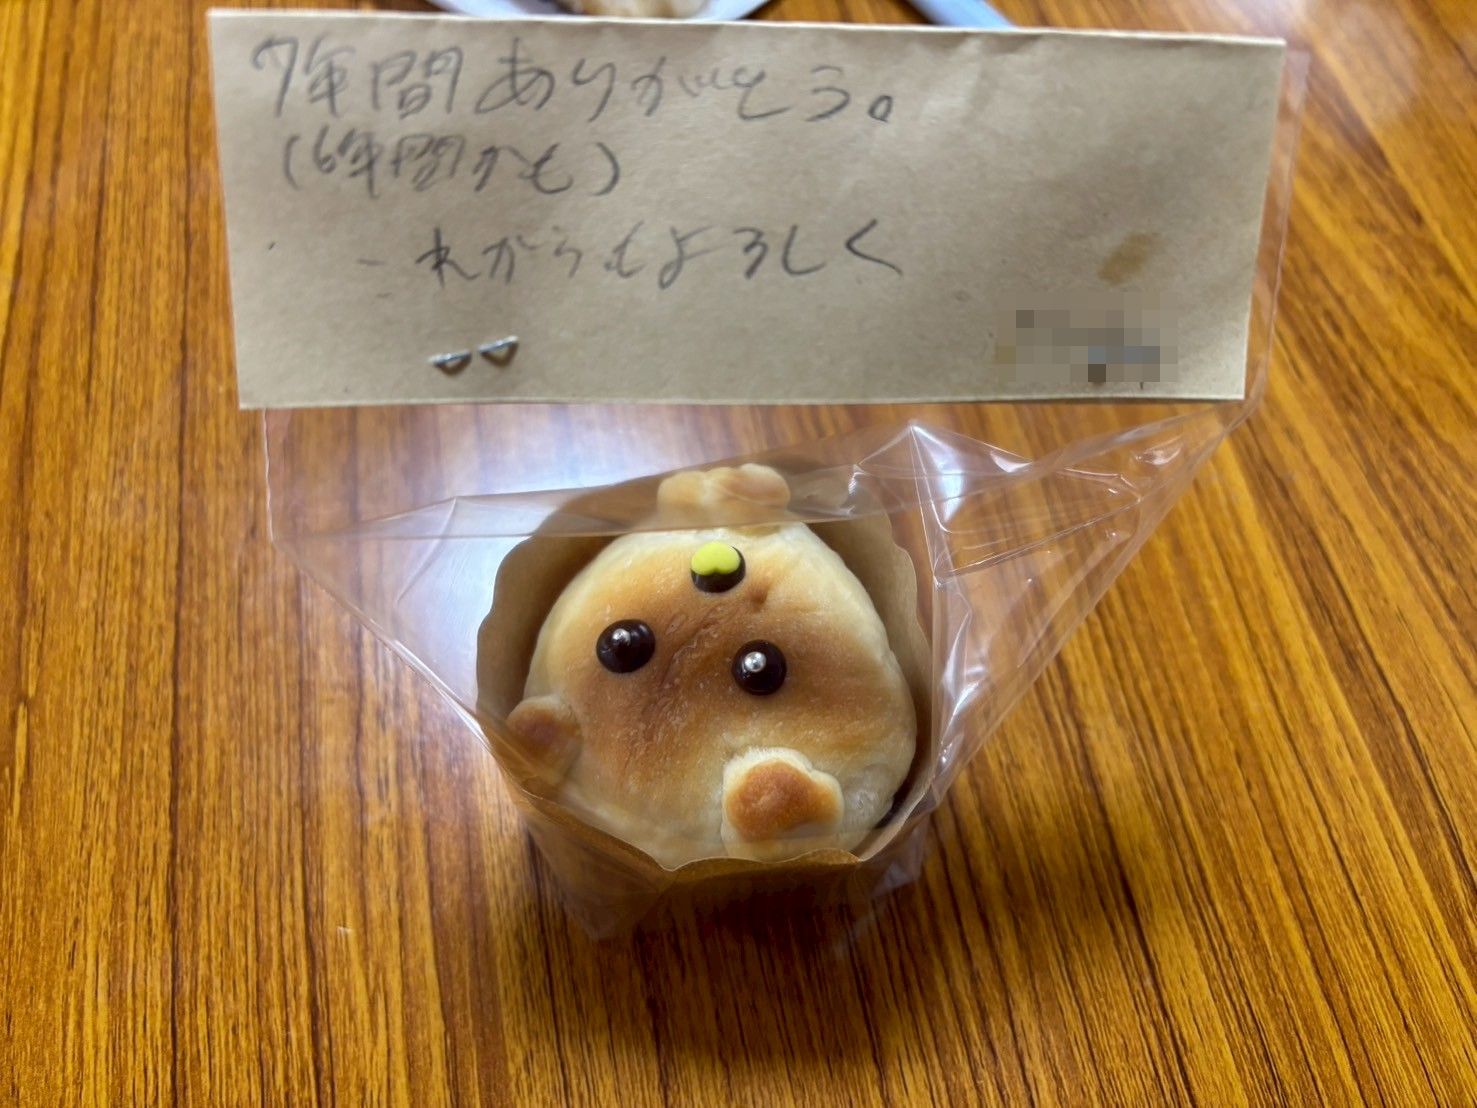 7年間ありがとう。
(6年間かも)
これからもよろしく